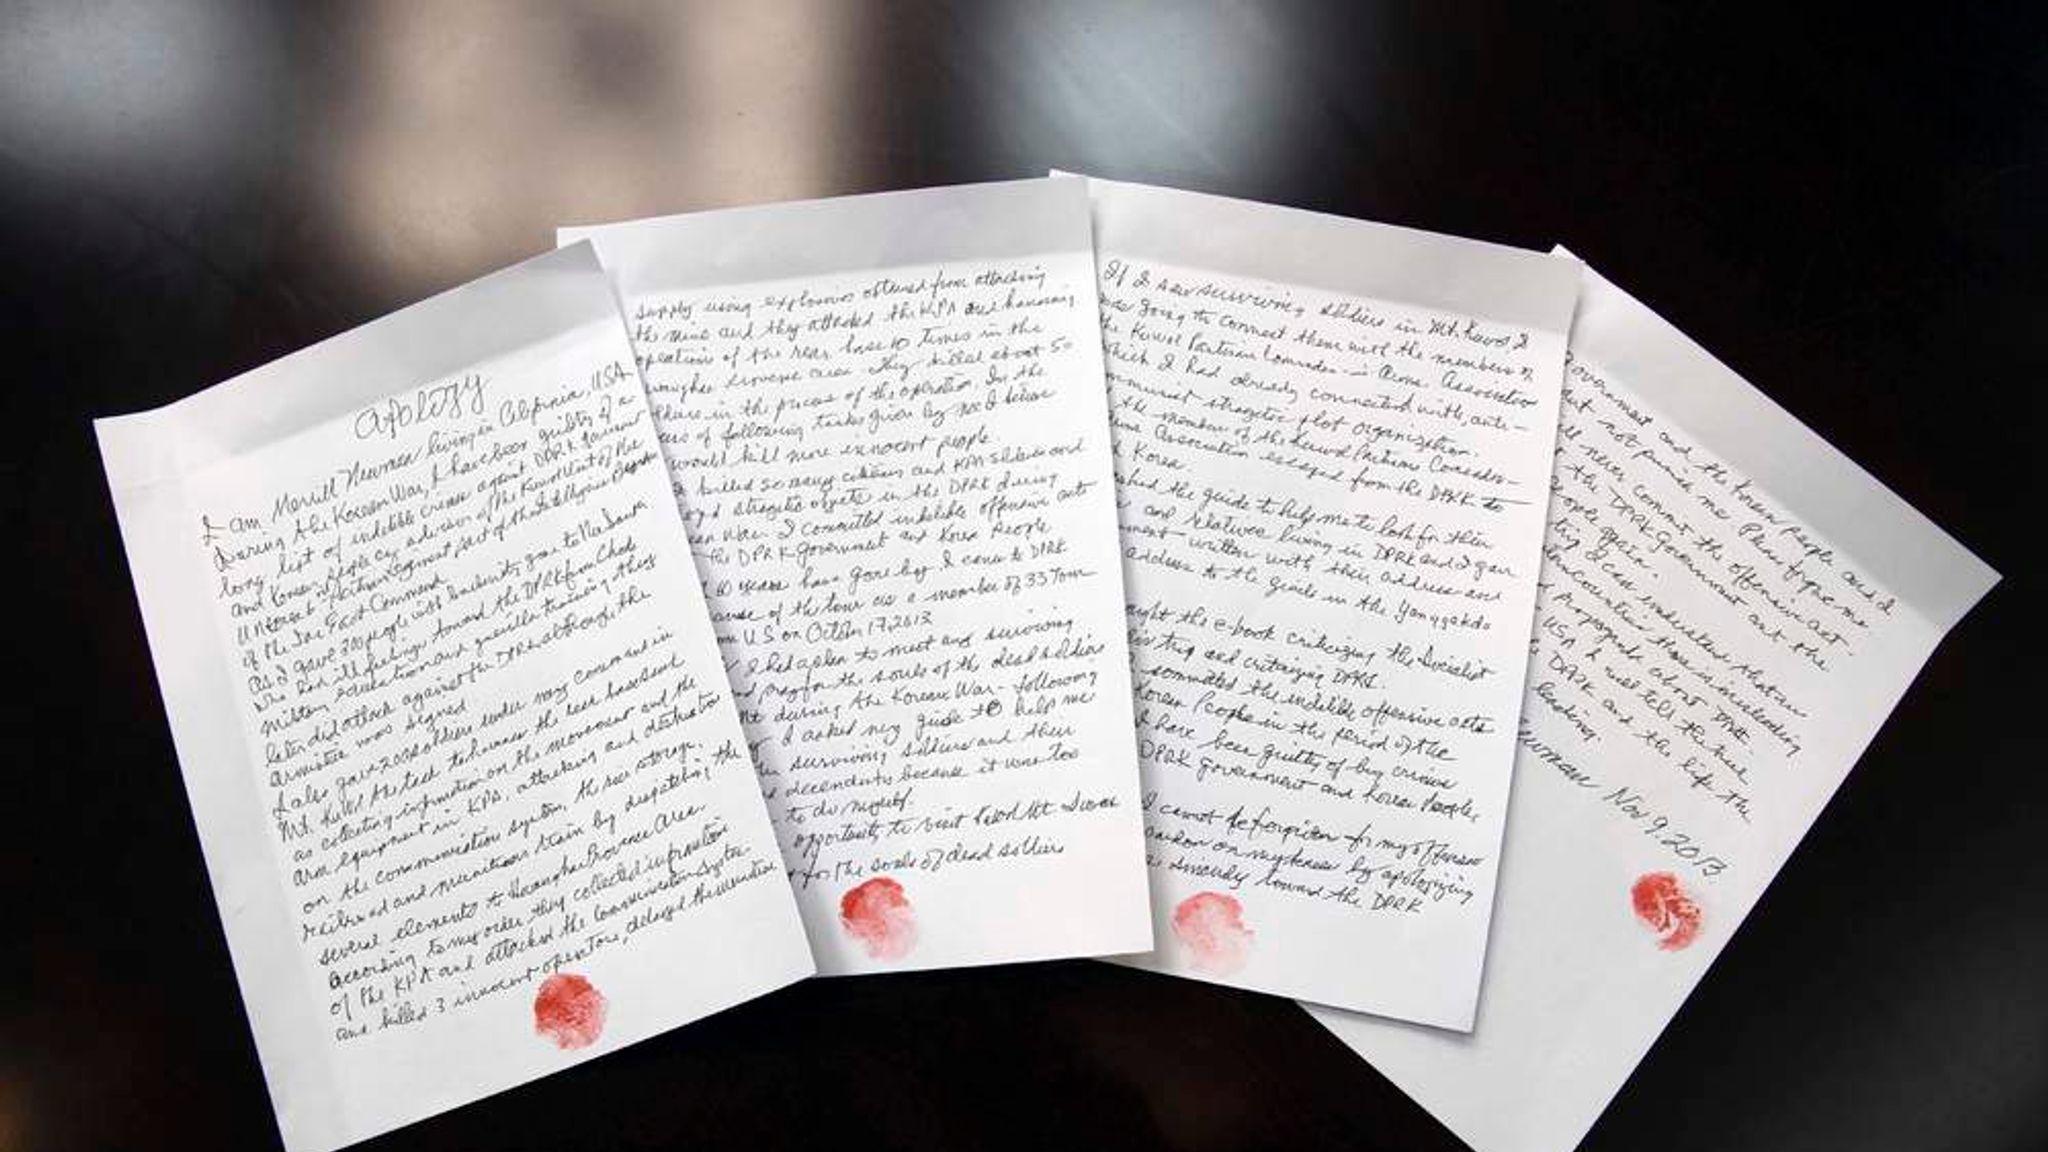 Apology
I am Merrill Newman living in California, USA
During the Korean War, I have been guilty of a
long list of indelible crimes against DPRK government
and Korean people as advisor of the Kuwol Unit of the
UN Korea 6th Partisan Regiment part of the Intelligence
of the Far East Command
As I gave 300 people with
who had ill feelings toward the DPRK from Chodo
military education and guerilla training they
later did attack against the DPRK although the
armistice was signed
I also gave 200 soldiers under my command in
Mt. Kuwol the task to harass the rear
as collecting information on the movement and the
arm equipment in KPA, attacking and destruction
on the communication system, the rear storage,
railroad and munitions train by dispatching the
several elements to Hwanghae Province Area.
According to my order they collected information
of the KPA and attacked the communication system
and killed 3 innocent operators, delayed the munitions
supply using explosives obtained from attacking
the mine and they attacked the KPA and harassing
operations of the rear base 10 times in the
province area they killed about 50
in the process of the operation. In the
of following tasks given by me I believe
would kill more innocent people.
killed so many civilians and KPA soldiers and
strategic objects in the DPRK during
War. I committed indelible offensive acts
the DPRK government and Korea People
60 years have gone by. I came to DPRK
of the tour as a member of 33 Tour
U S on October 17, 2013
I had a plan to meet any surviving
pray for the souls of the dead soldiers
during the Korean War - following
I asked my guide to help me
surviving soldiers and their
descendents because it was too
to do myself.
opportunity to visit
for the souls of dead soldiers
If I saw surviving soldiers in Mt. Kuwol, I
was going to connect them with the members of
the Kuwol Partisan Comrades-in Arms Association
which I had already connected with, anti-
strategic plot organization.
the member of the Kuwol Partisan Comrades-
Association escaped from the DPRK to
Korea.
the guide to help me to look for their
and relatives living in DPRK and I gave
written with their address and
address to the guide in the Yanggakdo
the e-book criticizing the Socialist
trip and criticizing DPRK.
committed the indelible offensive acts
Korean People in the period of the
have been guilty of big crimes
DPRK government and Korean People.
I cannot be forgiven for my offensive
pardon on my knees by apologizing
sincerely toward the DPRK
Government and the Korean People and I
not punish me. Please forgive me
never commit the offensive act
the DPRK Government and the
People again.
if I can understand
countries there is misleading
propaganda about DPRK.
USA I will tell the true
DPRK and the life the
leading.
Newman Nov 9, 2013